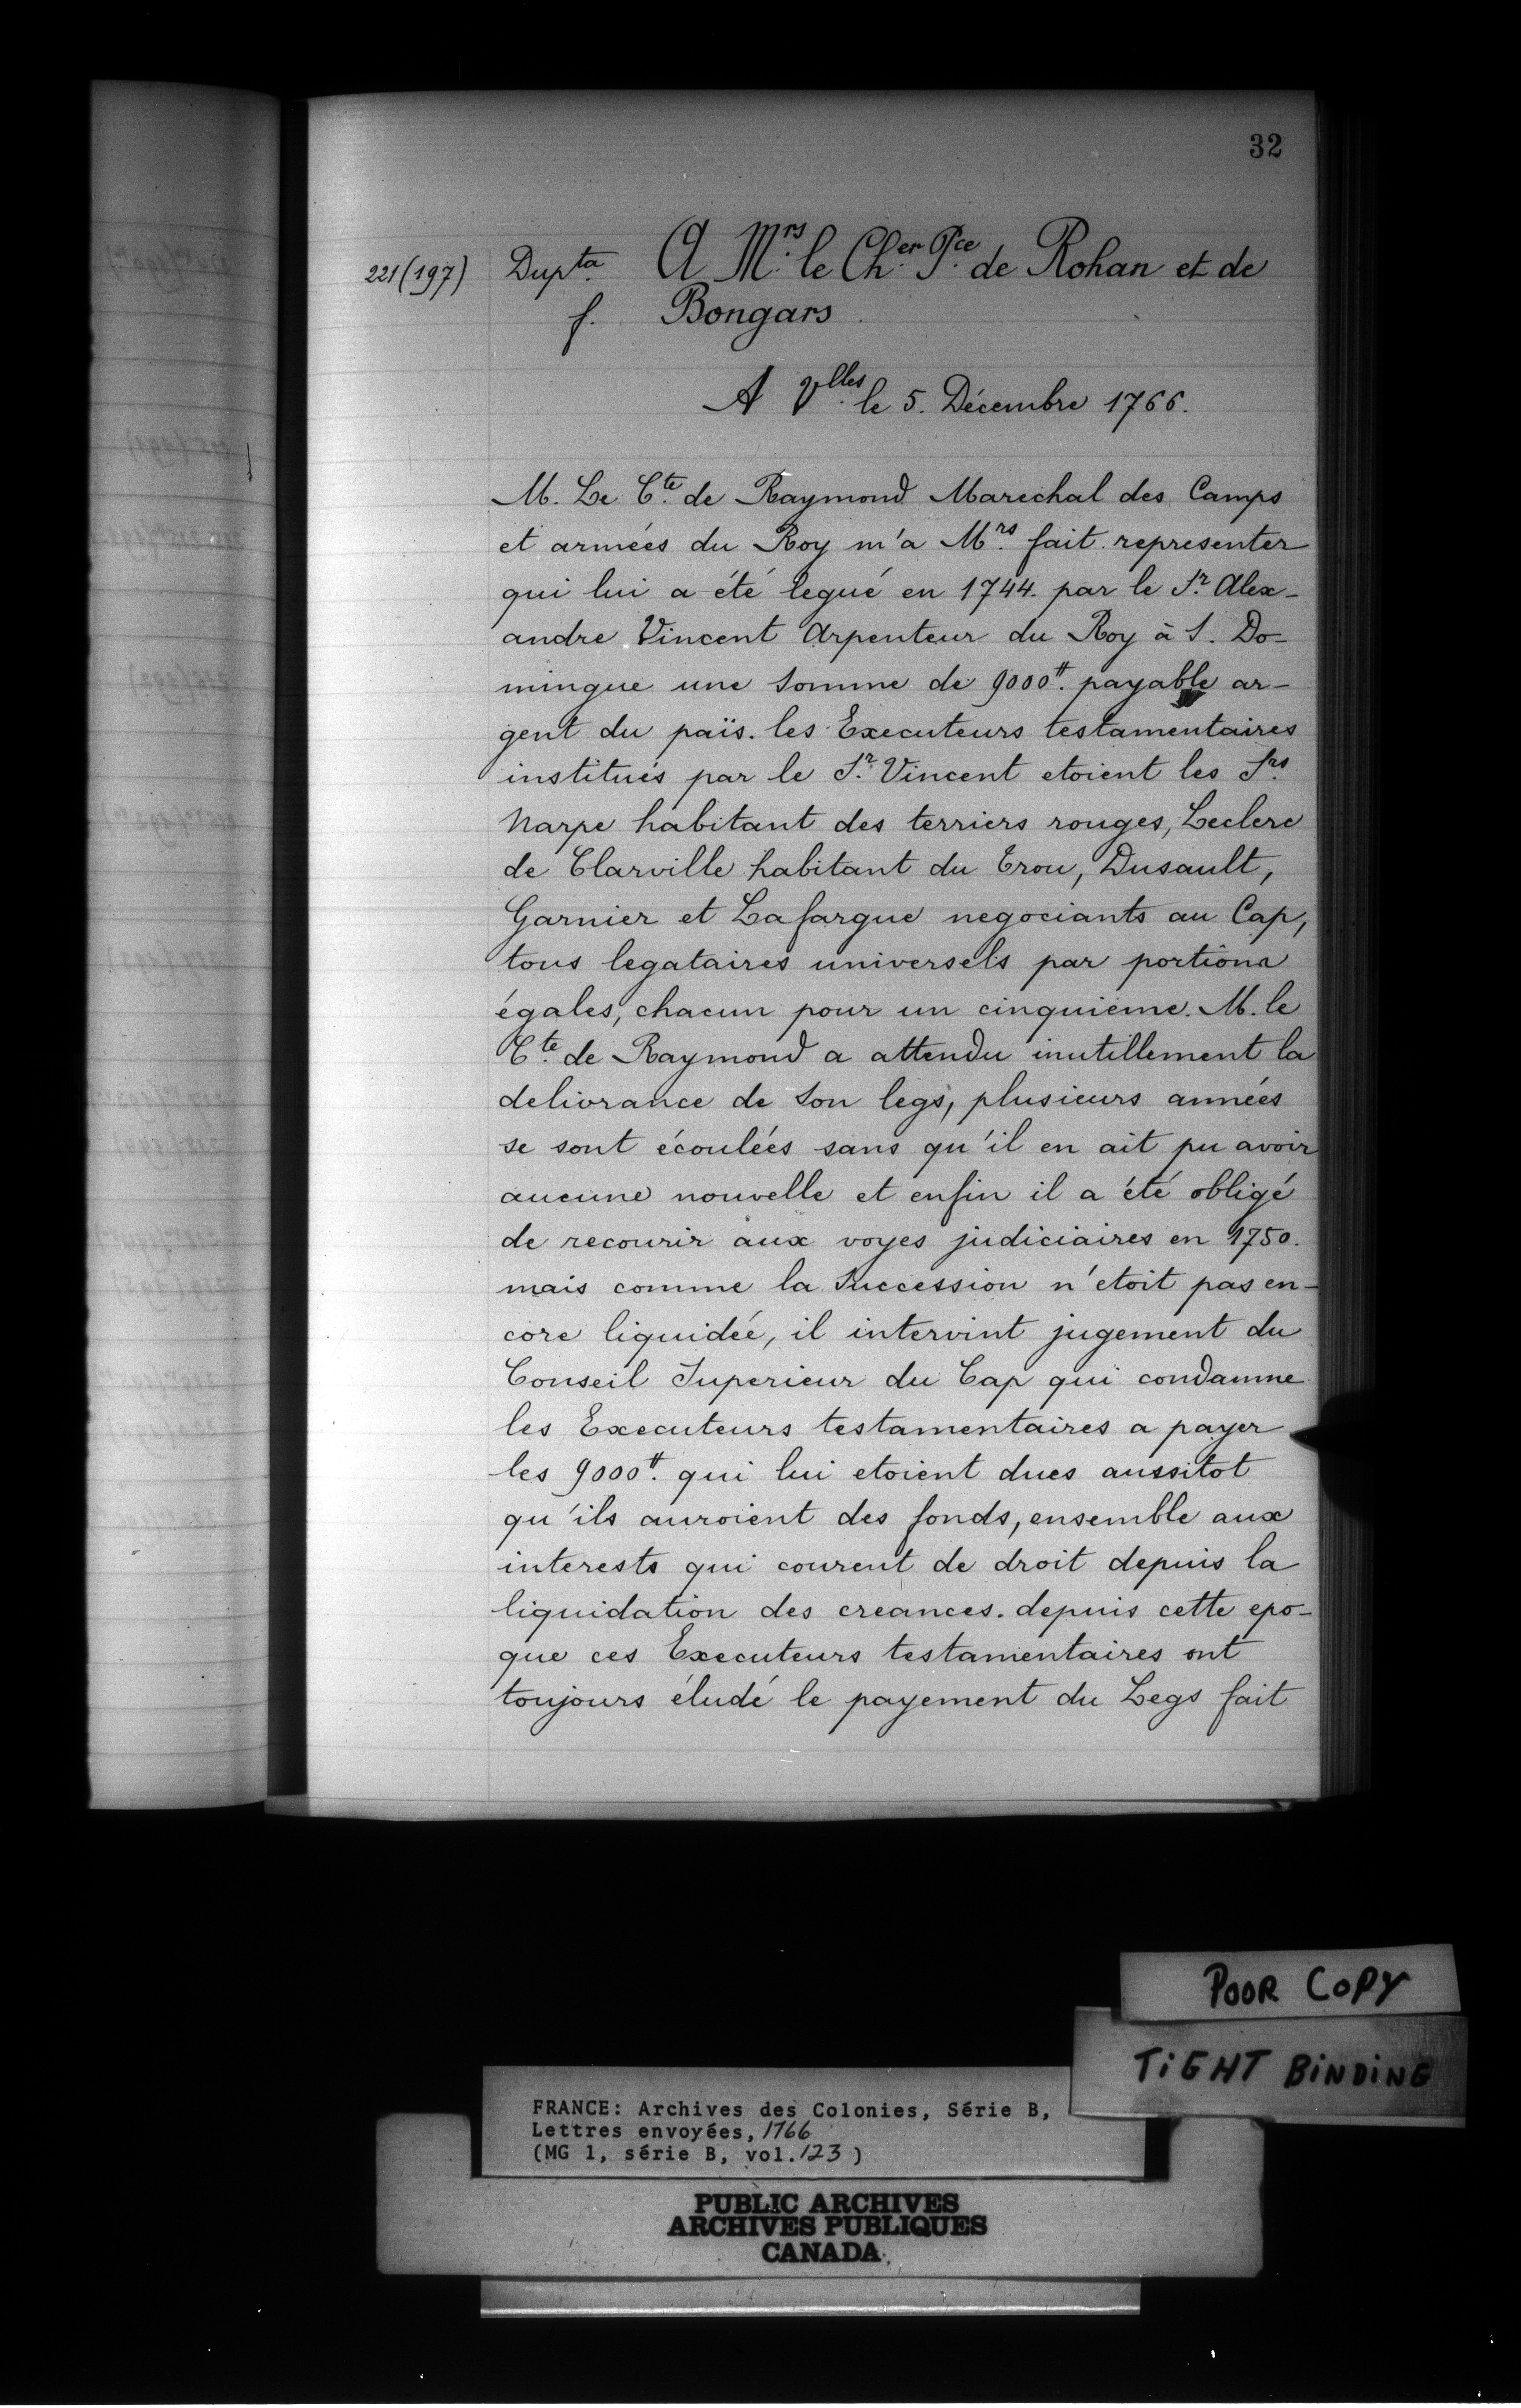 32
221 (197) Dupta. A Mrs. le Cher. Pce. de Rohan et de
f. Bongars
A Vlles. le 5. Décembre 1766.
M. Le Cte. de Raymond Marechal des Camps
et armées du Roy m'a Mrs. fait representer
qui lui a été legué en 1744. par le Sr. Alex-
andre Vincent Arpenteur du Roy à S. Do-
mingue une Somme de 9000#. payable ar-
gent du païs. les Executeurs testamentaires
institués par le Sr. Vincent etoient les Srs.
Narpe habitant des terriers rouges, Leclerc
de Clarville habitant du Trou, Dusault,
Garnier et Lafargue negociants au Cap,
tous legataires universels par portions
égales, chacun pour un cinquieme. M. le
Cte. de Raymond a attendu inutillement la
delivrance de Son legs, plusieurs années
se sont écoulées sans qu'il en ait pu avoir
aucune nouvelle et enfin il a été obligé
de recourir aux voyes judiciaires en 1750.
mais comme la Succession n'etoit pas en-
core liquidée, il intervint jugement du
Conseil Superieur du Cap qui condamne
les Executeurs testamentaires a payer
les 9000#. qui lui etoient dues aussitot
qu'ils auroient des fonds, ensemble aux
interests qui courent de droit depuis la
liquidation des creances. depuis cette epo-
que ces Executeurs testamentaires ont
toujours éludé le payement du Legs fait
POOR COPY
TIGHT BINDING
FRANCE: Archives des Colonies, Série B,
Lettres envoyées, 1766
(MG 1, série B, vol. 123)
PUBLIC ARCHIVES
ARCHIVES PUBLIQUES
CANADA